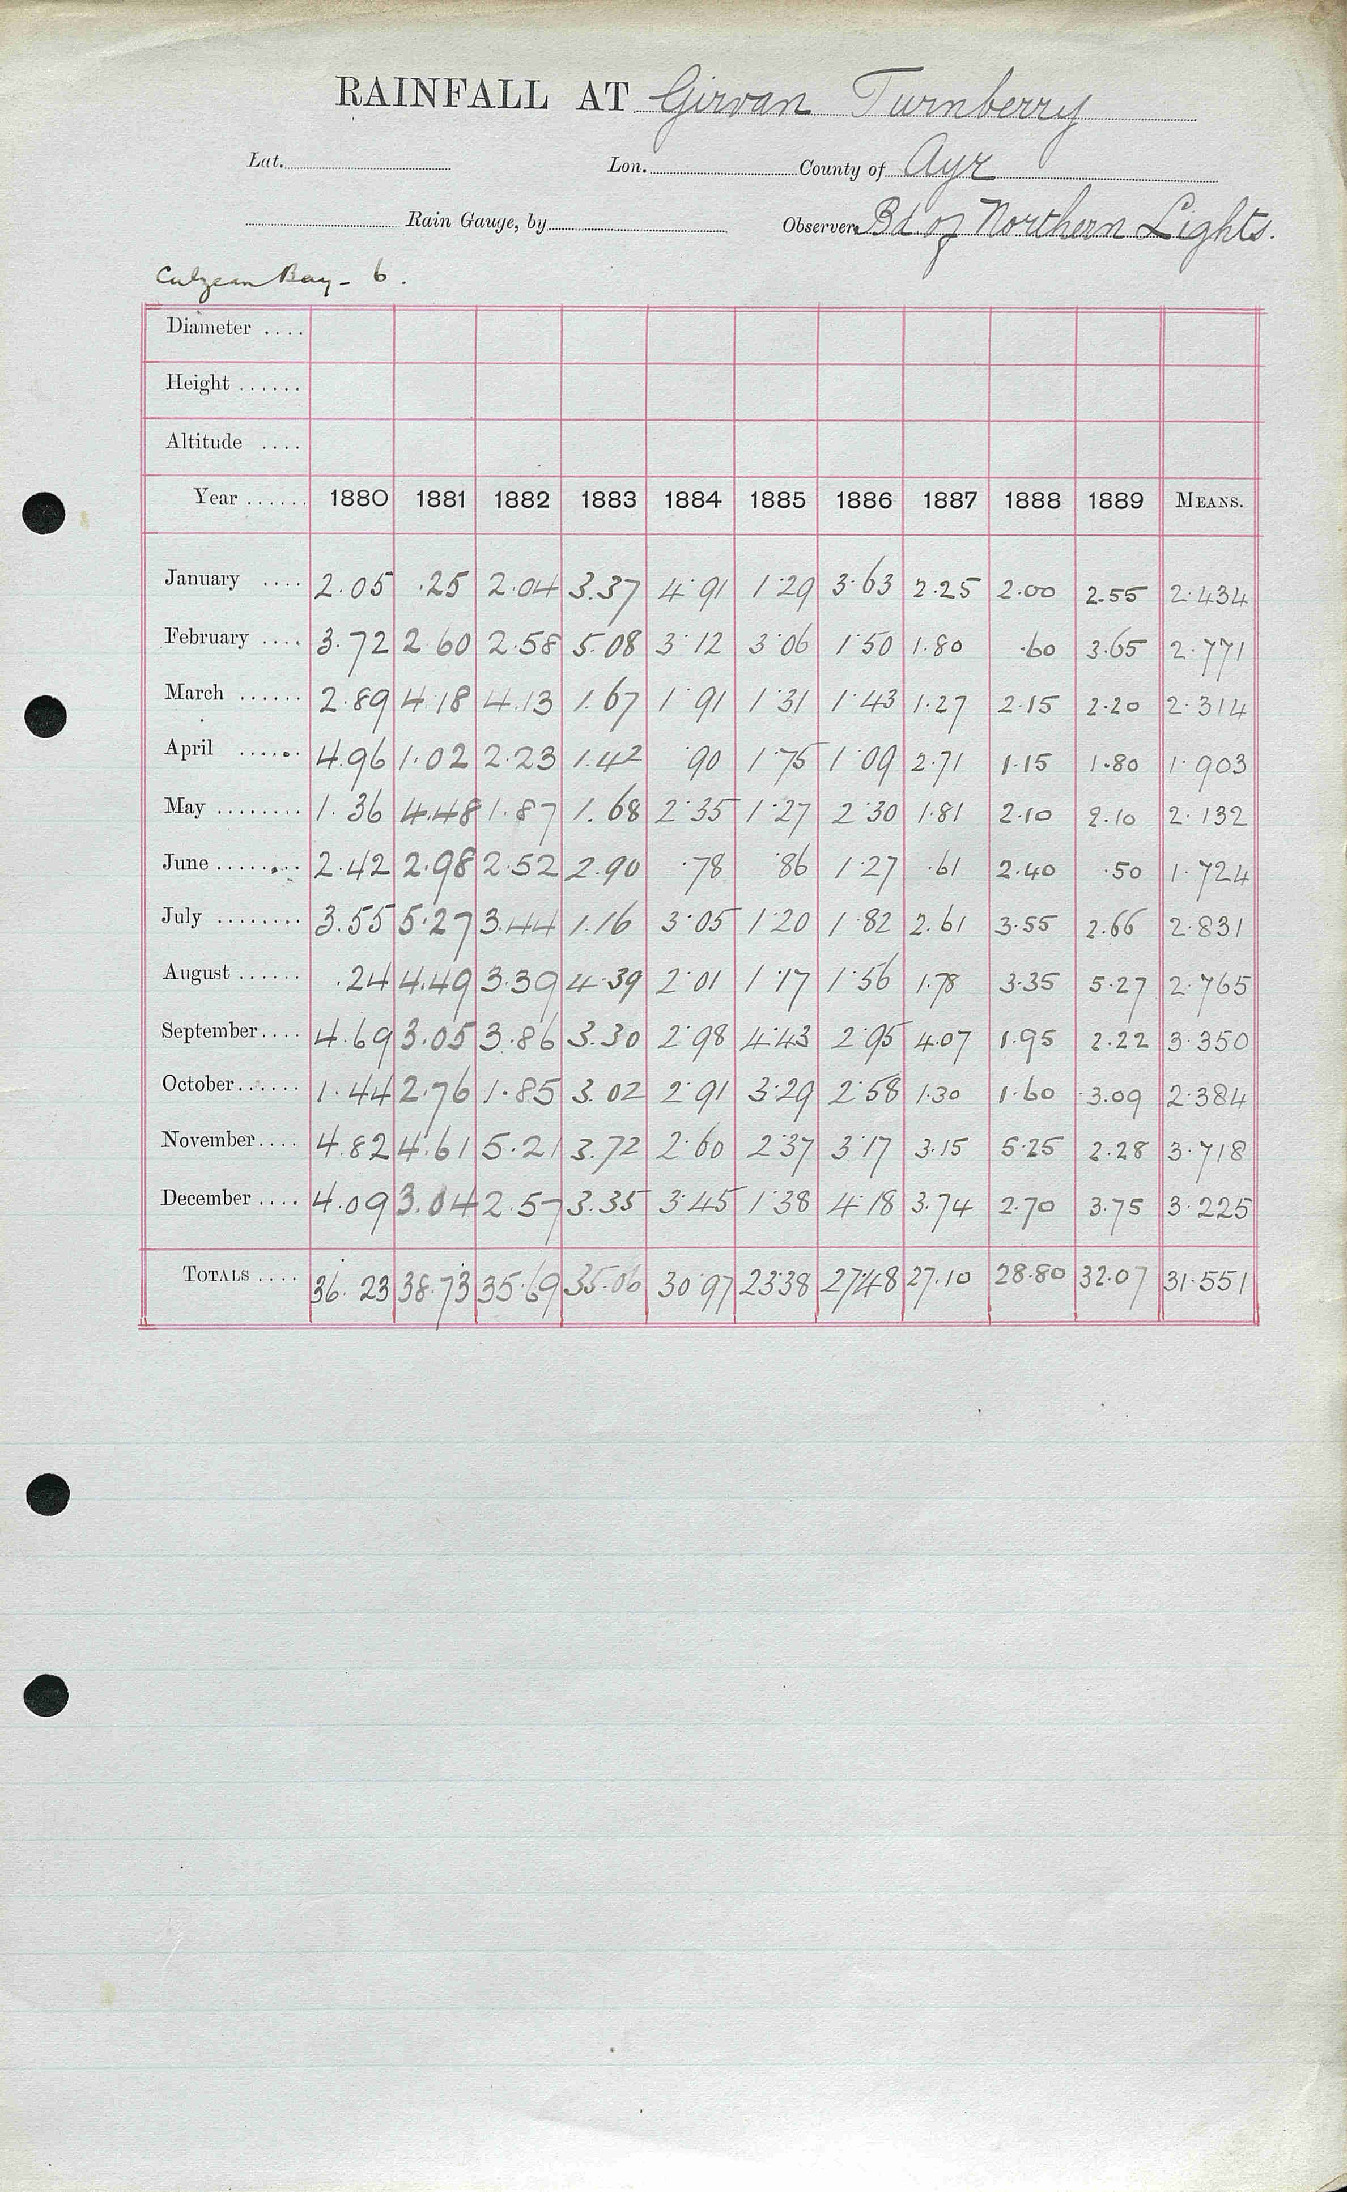 RAINFALL AT Girvan Turnberry
Lat. Lon. County of Ayr
Rain Gauge, by Observer Bd. of Northern Lights.
Culzean Bay - 6.
Diameter ....
Height ......
Altitude ....
Year ...... 1880 1881 1882 1883 1884 1885 1886 1887 1888 1889 MEANS.
January .... 2.05 .25 2.04 3.37 4.91 1.29 3.63 2.25 2.00 2.55 2.434
February .... 3.72 2.60 2.58 5.08 3.12 3.06 1.50 1.80 .60 3.65 2.771
March ...... 2.89 4.18 4.13 1.67 1.91 1.31 1.43 1.27 2.15 2.20 2.314
April ...... 4.96 1.02 2.23 1.42 .90 1.75 1.09 2.71 1.15 1.80 1.903
May ........ 1.36 4.48 1.87 1.68 2.35 1.27 2.30 1.81 2.10 2.10 2.132
June ........ 2.42 2.98 2.52 2.90 .78 .86 1.27 .61 2.40 .50 1.724
July ........ 3.55 5.27 3.44 1.16 3.05 1.20 1.82 2.61 3.55 2.66 2.831
August ...... .24 4.49 3.39 4.39 2.01 1.17 1.56 1.78 3.35 5.27 2.765
September.... 4.69 3.05 3.86 3.30 2.98 4.43 2.95 4.07 1.95 2.22 3.350
October...... 1.44 2.76 1.85 3.02 2.91 3.29 2.58 1.30 1.60 3.09 2.384
November.... 4.82 4.61 5.21 3.72 2.60 2.37 3.17 3.15 5.25 2.28 3.718
December .... 4.09 3.04 2.57 3.35 3.45 1.38 4.18 3.74 2.70 3.75 3.225
TOTALS .... 36.23 38.73 35.69 35.06 30.97 23.38 27.48 27.10 28.80 32.07 31.551